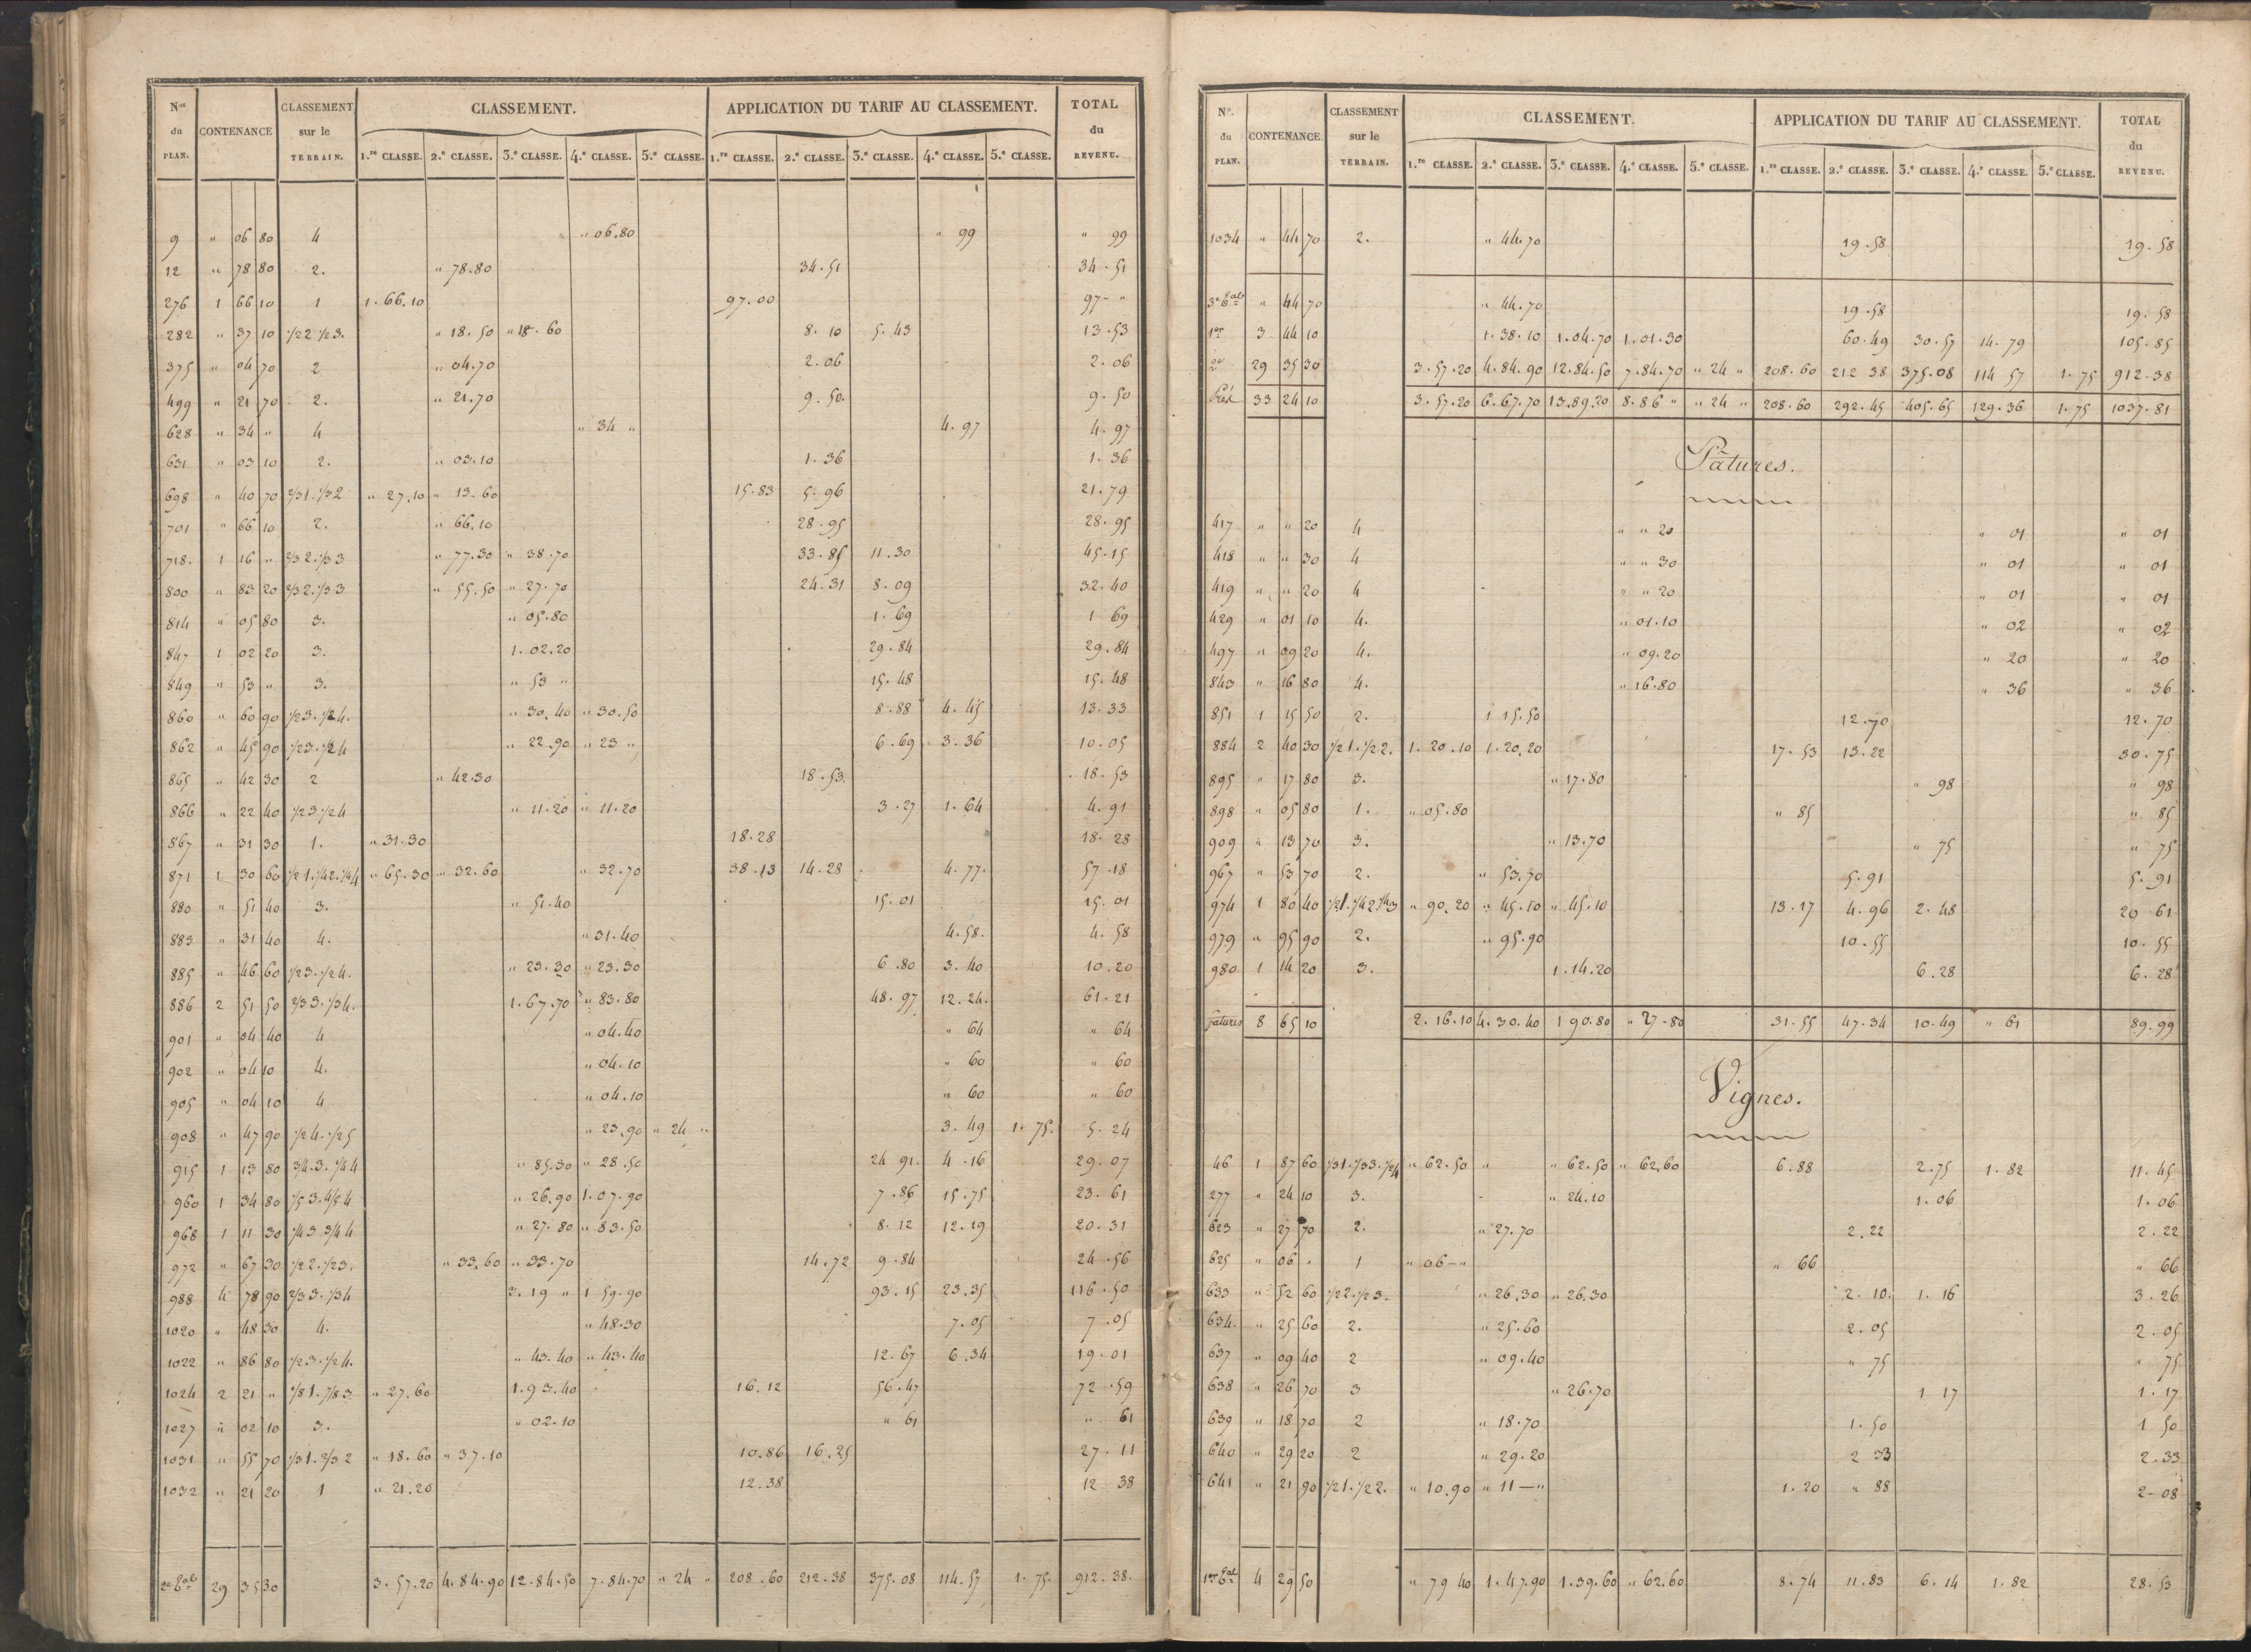 Nos du PLAN. CONTENANCE CLASSEMENT sur le TERRAIN. CLASSEMENT. APPLICATION DU TARIF AU CLASSEMENT. TOTAL du REVENU.
1.re CLASSE. 2.e CLASSE. 3.e CLASSE. 4.e CLASSE. 5.e CLASSE. 1.re CLASSE. 2.e CLASSE. 3.e CLASSE. 4.e CLASSE. 5.e CLASSE.
9 " 06 80 4 " 06.80 " 99 " 99
12 " 78 80 2. " 78.80 34.51 34.51
276 1 66 10 1 1.66.10 97.00 97- "
282 " 37 10 1/2 2 1/2 3. " 18.50 " 18.60 8.10 5.43 13.53
375 " 04 70 2 " 04.70 2.06 2.06
499 " 21 70 2. " 21.70 9.50 9.50
628 " 34 " 4 " 34 " 4.97 4.97
631 " 03 10 2. " 03.10 1.36 1.36
698 " 40 70 2/3 1. 1/3 2 " 27.10 " 13.60 15.83 5.96 21.79
701 " 66 10 2. " 66.10 28.95 28.95
718. 1 16 " 2/3 2. 1/3 3 " 77.30 " 38.70 33.85 11.30 45.15
800 " 83 20 2/3 2. 1/3 3 " 55.50 " 27.70 24.31 8.09 32.40
814 " 05 80 3. " 05.80 1.69 1 69
847 1 02 20 3. 1.02.20 29.84 29.84
849 " 53 " 3. " 53 " 15.48 15.48
860 " 60 90 1/2 3. 1/2 4. " 30.40 " 30.50 8.88 4.45 13.33
862 " 45 90 1/2 3. 1/2 4 " 22.90 " 23 " 6.69 3.36 10.05
865 " 42 30 2 " 42.30 18.53 18.53
866 " 22 40 1/2 3 1/2 4 " 11.20 " 11.20 3.27 1.64 4.91
867 " 31 30 1. " 31.30 18.28 18.28
871 1 30 60 1/2 1. 1/4 2. 1/4 4 " 65.30 " 32.60 " 32.70 38.13 14.28 4.77. 57.18
880 " 51 40 3. " 51.40 15.01 15.01
883 " 31 40 4. " 31.40 4.58. 4.58
885 " 46 60 1/2 3. 1/2 4. " 23.30 " 23.30 6.80 3.40 10.20
886 2 51 50 2/3 3. 1/3 4. 1.67.70 " 83.80 48.97 12.24. 61.21
901 " 04 40 4 " 04.40 " 64 " 64
902 " 04 10 4. " 04.10 " 60 " 60
905 " 04 10 4 " 04.10 " 60 " 60
908 " 47 90 1/2 4. 1/2 5 " 23.90 " 24 " 3.49 1.75. 5.24
915 1 13 80 3/4 3. 1/4 4 " 85.30 " 28.50 24 91. 4.16 29.07
960 1 34 80 1/5 3. 4/5 4 " 26.90 1.07.90 7.86 15.75 23.61
968 1 11 30 1/4 3 3/4 4 " 27.80 " 83.50 8.12 12.19 20.31
972 " 67 30 1/2 2. 1/2 3. " 33.60 " 33.70 14.72 9.84 24.56
988 4 78 90 2/3 3. 1/3 4 3.19 " 1 59.90 93.15 23.35 116.50
1020 " 48 30 4. " 48.30 7.05 7.05
1022 " 86 80 1/2 3. 1/2 4. " 43.40 " 43.40 12.67 6.34 19.01
1024 2 21 " 1/8 1. 7/8 3 " 27.60 1.93.40 16.12 56.47 72.59
1027 " 02 10 3. " 02.10 " 61 " 61
1031 " 55 70 1/3 1. 2/3 2 " 18.60 " 37.10 10.86 16.25 27.11
1032 " 21 20 1 " 21.20 12.38 12 38
2e Tal 29 35 30 3.57.20 4.84.90 12.84.50 7.84.70 " 24 " 208.60 212.38 375.08 114.57 1.75. 912.38.
Nos. du PLAN. CONTENANCE. CLASSEMENT sur le TERRAIN. CLASSEMENT. APPLICATION DU TARIF AU CLASSEMENT. TOTAL du REVENU.
1.re CLASSE. 2.e CLASSE. 3.e CLASSE. 4.e CLASSE. 5.e CLASSE. 1.re CLASSE. 2.e CLASSE. 3.e CLASSE. 4.e CLASSE. 5.e CLASSE.
1034 " 44 70 2. " 44.70 19.58 19.58
3e Tal " 44 70 " 44.70 19.58 19.58
1er 3 44 10 1.38.10 1.04.70 1.01.30 60.49 30.57 14.79 105.85
2e 29 35 30 3.57.20 4.84.90 12.84.50 7.84.70 " 24 " 208.60 212 38 375.08 114 57 1.75 912.38
Prés 33 24 10 3.57.20 6.67.70 13.89.20 8.86 " " 24 " 208.60 292.45 405.65 129.36 1.75 1037.81
Pâtures.
417 " " 20 4 " " 20 " 01 " 01
418 " " 30 4 " " 30 " 01 " 01
419 " " 20 4 " " 20 " 01 " 01
429 " 01 10 4. " 01.10 " 02 " 02
497 " 09 20 4. " 09.20 " 20 " 20
843 " 16 80 4. " 16.80 " 36 " 36
851 1 15 50 2. 1 15.50 12.70 12.70
884 2 40 30 1/2 1. 1/2 2. 1.20.10 1.20.20 17.53 13.22 30.75
895 " 17 80 3. " 17.80 " 98 " 98
898 " 05 80 1. " 05.80 " 85 " 85
909 " 13 70 3. " 13.70 " 75 " 75
967 " 53 70 2. " 53.70 5.91 5.91
974 1 80 40 1/2 1. 1/4 2 1/4 3 " 90.20 " 45.10 " 45.10 13.17 4.96 2.48 20 61
979 " 95 90 2. " 95.90 10.55 10.55
980 1 14 20 3. 1.14.20 6.28 6.28
Pâtures 8 65 10 2.16.10 4.30.40 1 90.80 " 27.80 31.55 47.34 10.49 " 61 89.99
Vignes.
46 1 87 60 1/3 1. 1/3 3. 1/3 4 " 62.50 " " 62.50 " 62.60 6.88 2.75 1.82 11.45
277 " 24 10 3. " 24.10 1.06 1.06
623 " 27 70 2. " 27.70 2.22 2.22
625 " 06 " 1 " 06-" " 66 " 66
633 " 52 60 1/2 2. 1/2 3. " 26.30 " 26.30 2.10. 1.16 3.26
634. " 25 60 2. " 25.60 2.05 2.05
637 " 09 40 2 " 09.40 " 75 " 75
638 " 26 70 3 " 26.70 1 17 1.17
639 " 18 70 2 " 18.70 1.50 1 50
640 " 29 20 2 " 29.20 2 33 2.33
641 " 21 90 1/2 1. 1/2 2. " 10.90 " 11-" 1.20 " 88 2-08
1er Tal 4 29 50 " 79 40 1.47.90 1.39.60 " 62.60 8.74 11.83 6.14 1.82 28.53